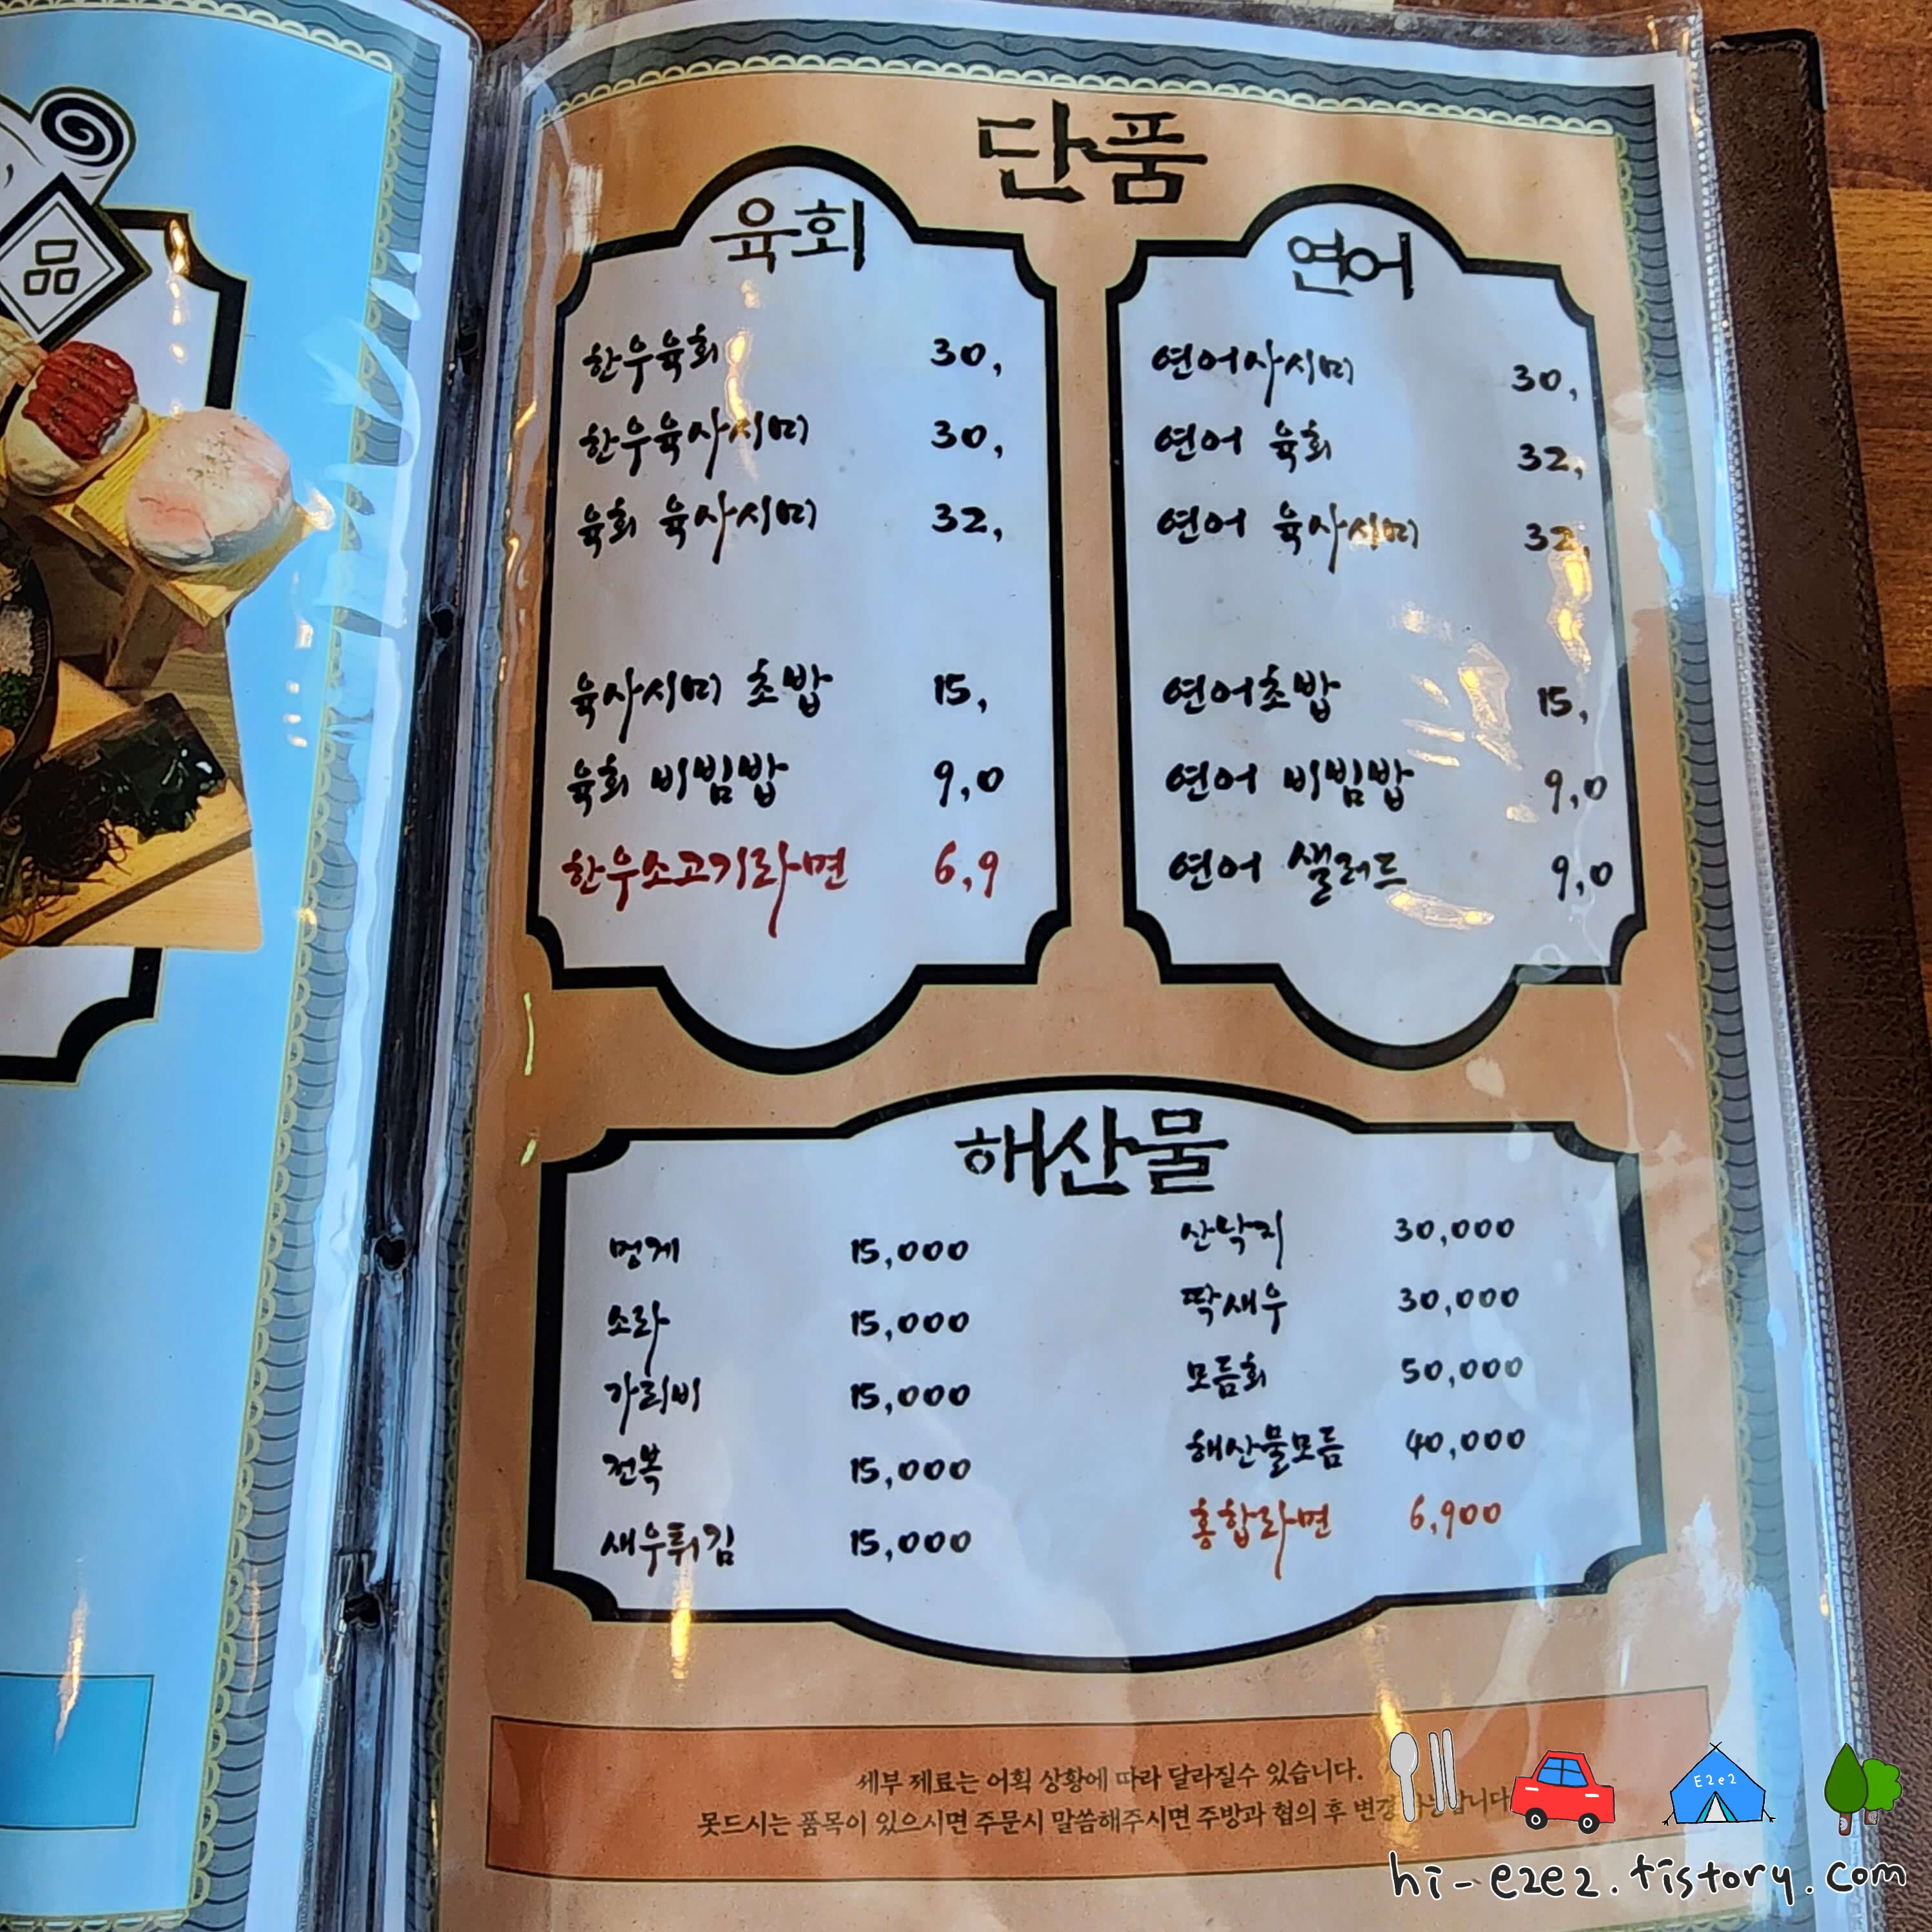 品
단품
육회
한우육회 30,
한우육사시미 30,
육회 육사시미 32,
육사시미 초밥 15,
육회 비빔밥 9,0
한우소고기라면 6,9
연어
연어사시미 30,
연어 육회 32,
연어 육사시미 32,
연어초밥 15,
연어 비빔밥 9,0
연어 샐러드 9,0
해산물
멍게 15,000
소라 15,000
가리비 15,000
전복 15,000
새우튀김 15,000
산낙지 30,000
딱새우 30,000
모듬회 50,000
해산물모듬 40,000
홍합라면 6,900
세부 제료는 어획 상황에 따라 달라질수 있습니다.
못드시는 품목이 있으시면 주문시 말씀해주시면 주방과 협의 후
E2e2
hi-e2e2.tistory.com